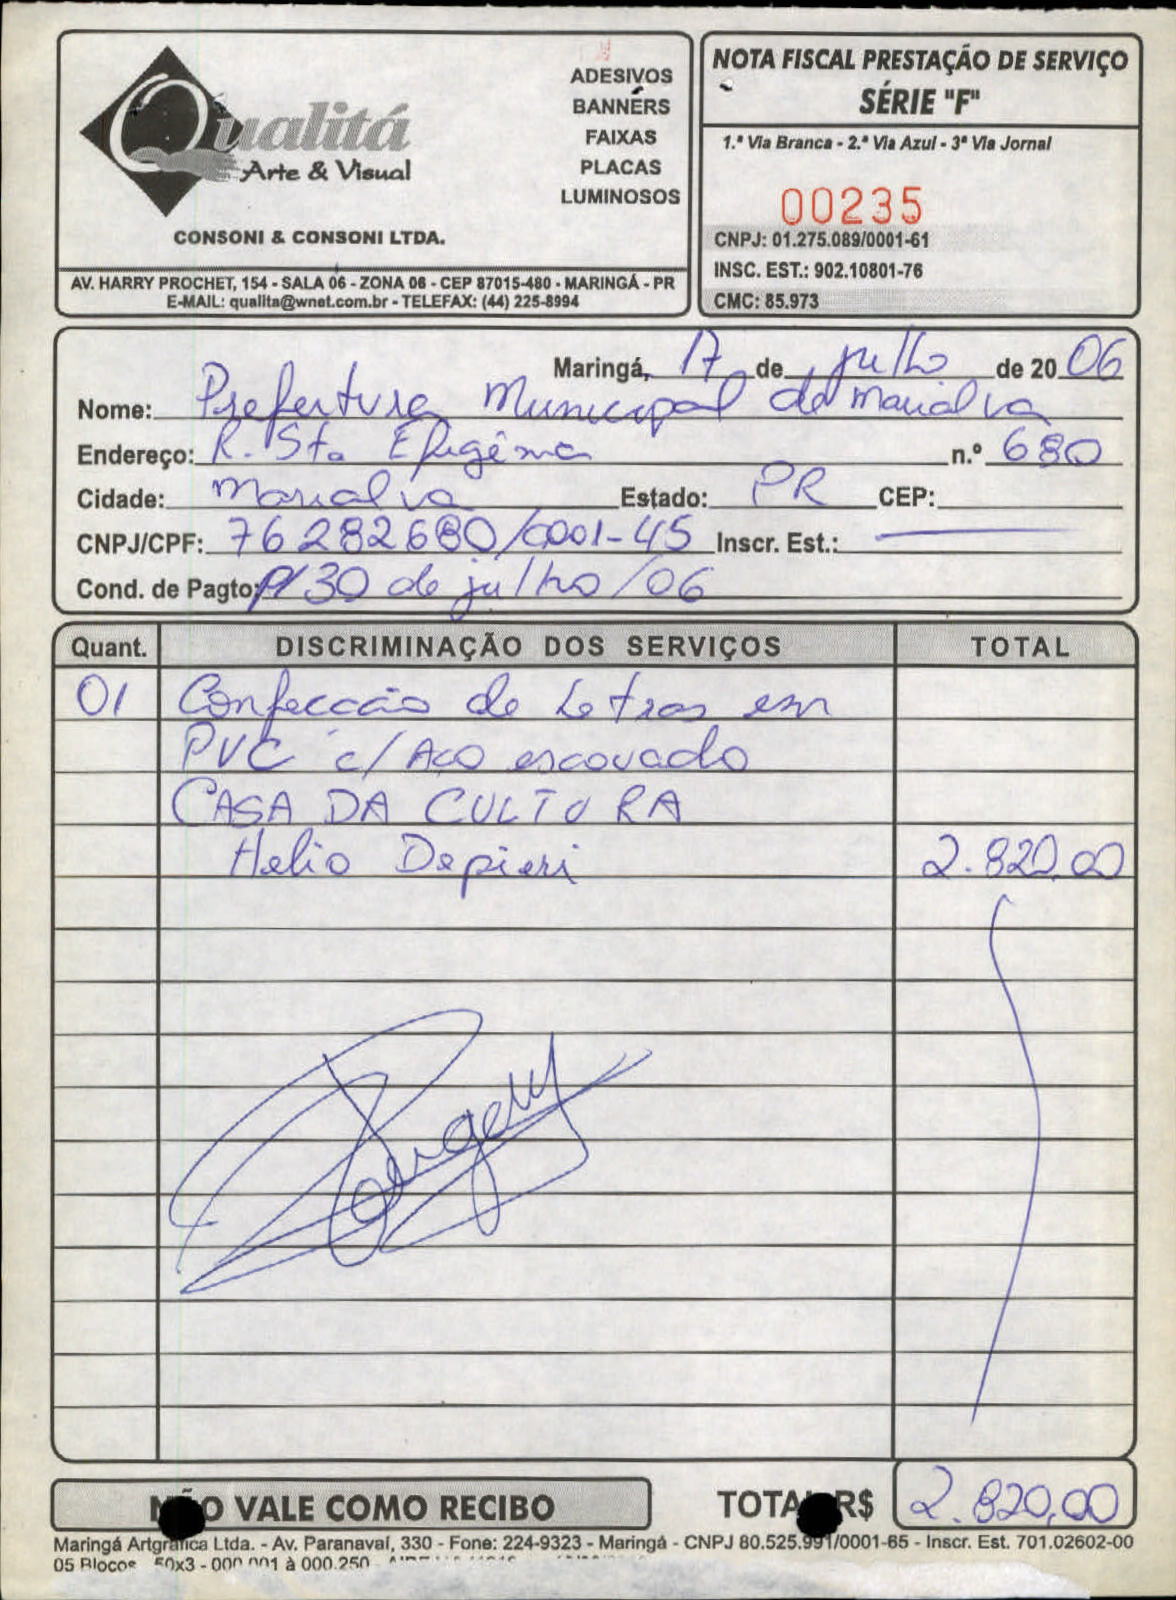 Qualitá
Arte & Visual
CONSONI & CONSONI LTDA.
ADESIVOS
BANNERS
FAIXAS
PLACAS
LUMINOSOS
AV. HARRY PROCHET, 154 - SALA 06 - ZONA 08 - CEP 87015-480 - MARINGÁ - PR
E-MAIL: qualita@wnet.com.br - TELEFAX: (44) 225-8994
NOTA FISCAL PRESTAÇÃO DE SERVIÇO
SÉRIE "F"
1.ª Via Branca - 2.ª Via Azul - 3ª Via Jornal
00235
CNPJ: 01.275.089/0001-61
INSC. EST.: 902.10801-76
CMC: 85.973
Maringá, 17 de julho de 2006
Nome: Prefertura Municipal de Marialva
Endereço: R. Sta Efigênia n.º 680
Cidade: Marialva Estado: PR CEP:
CNPJ/CPF: 76282680/0001-45 Inscr. Est.:
Cond. de Pagto: p/30 de julho/06
Quant. DISCRIMINAÇÃO DOS SERVIÇOS TOTAL
01 Confeccão de Letras em
PVC c/ Aco escovado
CASA DA CULTURA
Helio Depieri 2.820,00
NÃO VALE COMO RECIBO TOTAL R$ 2.820,00
Maringá Artgráfica Ltda. - Av. Paranavaí, 330 - Fone: 224-9323 - Maringá - CNPJ 80.525.991/0001-65 - Inscr. Est. 701.02602-00
05 Blocos 50x3 - 000.001 à 000.250 -